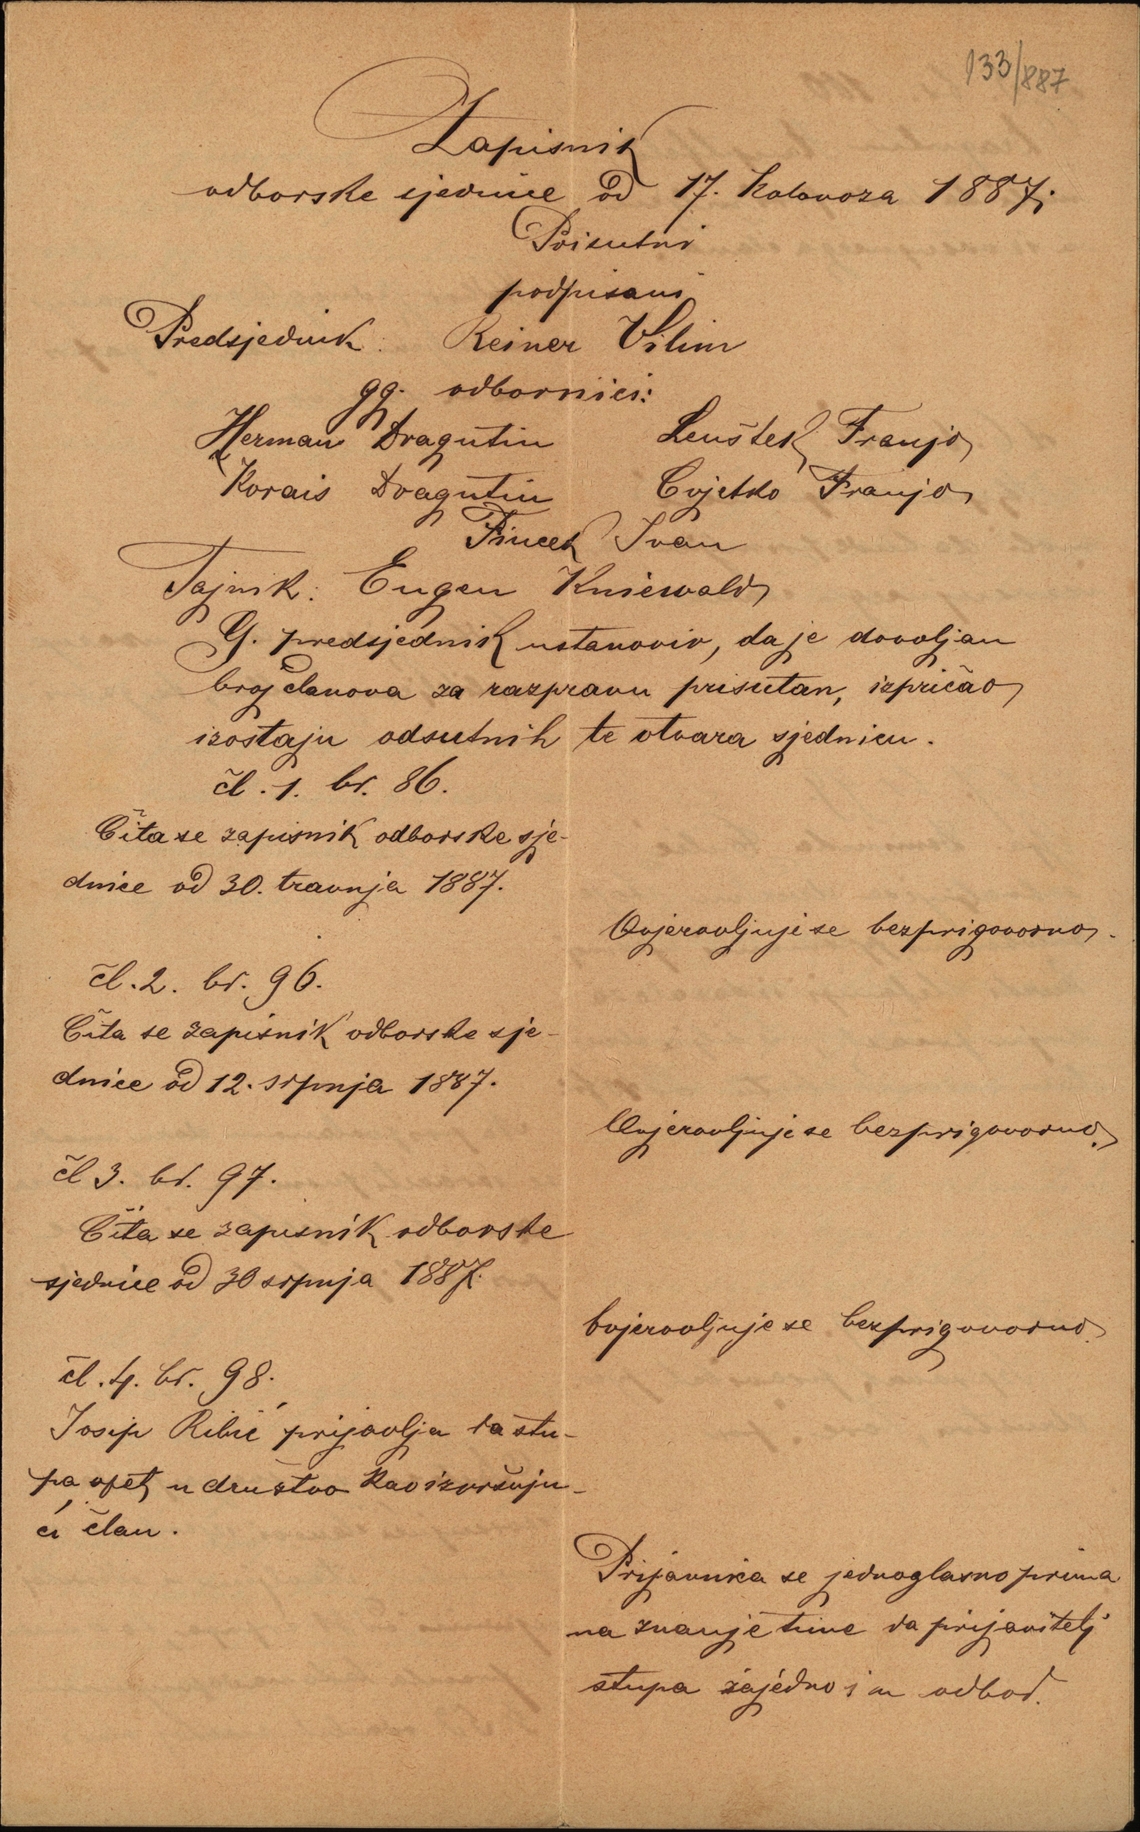 133/887
Zapisnik
odborske sjednice od 17. kolovoza 1887.
Prisutni
podpisani
Predsjednik: Reiner Vilim
gg. odbornici:
Herman Dragutin Leuštek Franjo
Korais Dragutin Cvjetko Franjo
Pincek Ivan
Tajnik: Eugen Kniewald
G. predsjednik ustanoviv, da je dovoljan
broj članova za razpravu prisutan, izpričao
izostaju odsutnih te otvara sjednicu.
čl. 1. br. 86.
Čita se zapisnik odborske sje-
dnice od 30. travnja 1887.
Ovjerovljuje se bezprigovorno.
čl. 2. br. 96.
Čita se zapisnik odborske sje-
dnice od 12. srpnja 1887.
Ovjerovljuje se bezprigovorno.
čl 3. br. 97.
Čita se zapisnik odborske
sjednice od 30 srpnja 1887.
Ovjerovljuje se bezprigovorno.
čl. 4. br. 98.
Josip Ribić prijavlja da stu-
pa opet u društvo kao izvršuju-
ći član.
Prijavnica se jednoglasno prima
na znanje time da prijavitelj
stupa zajedno i u odbor.